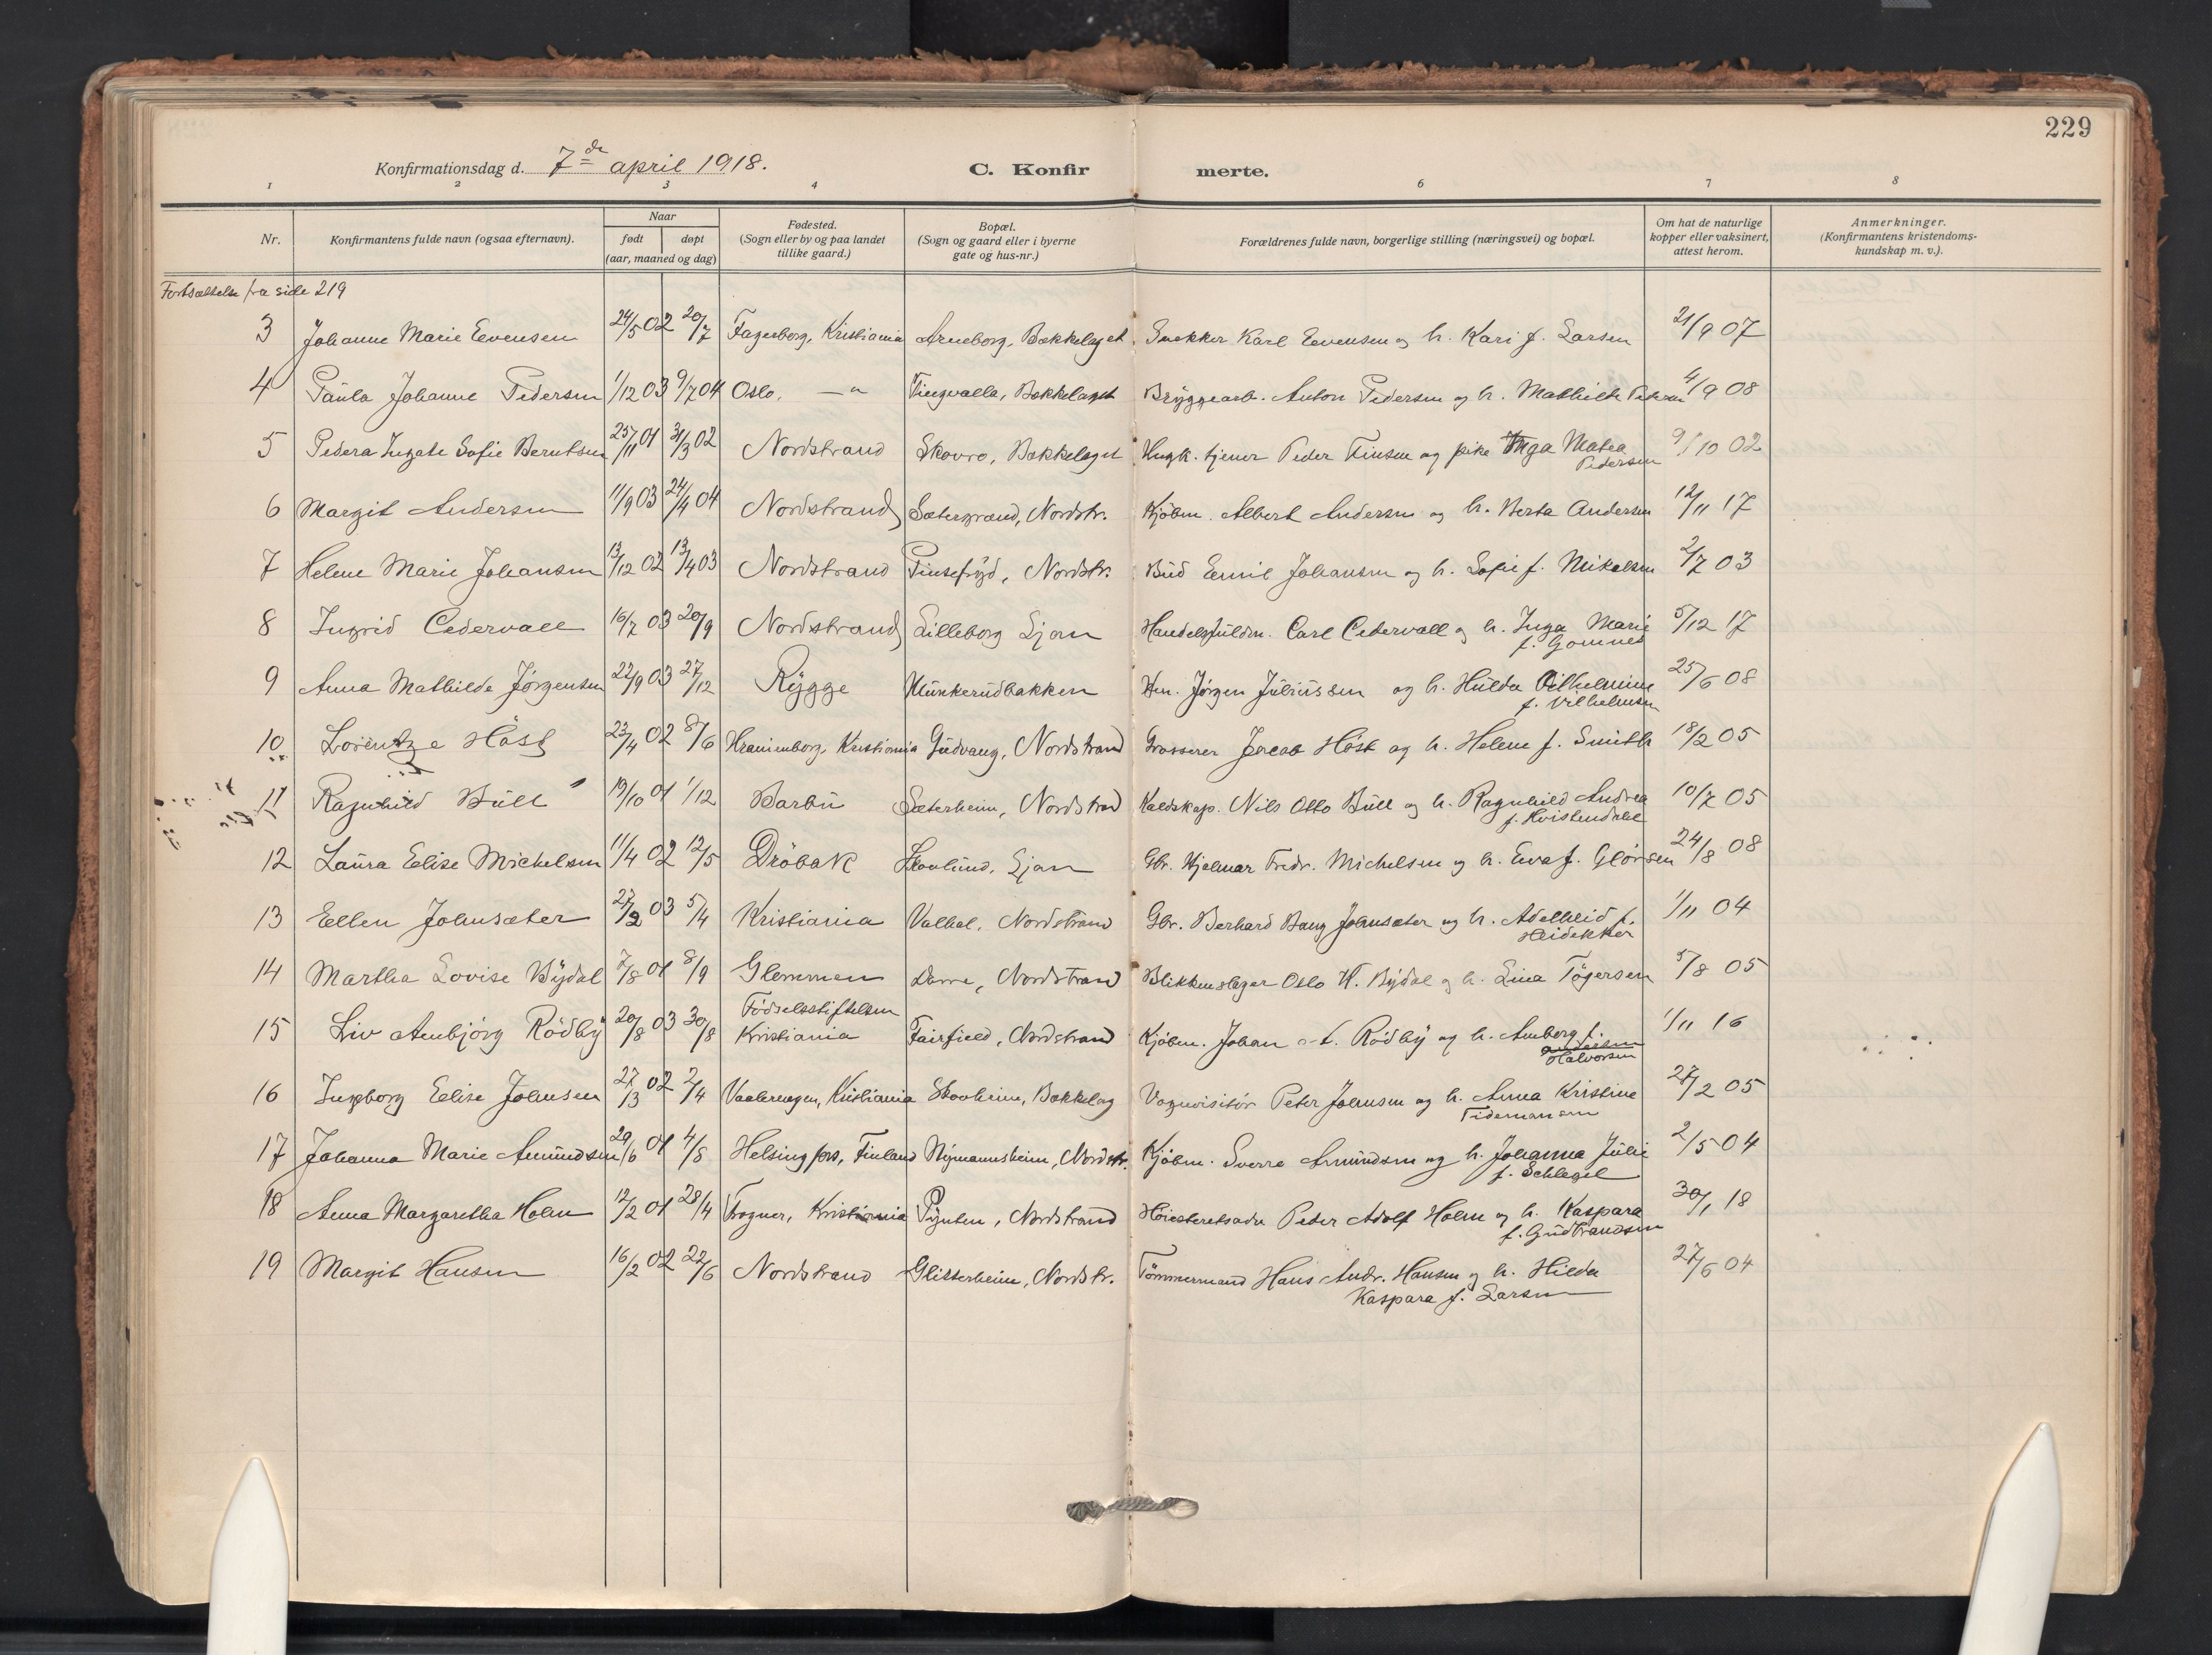 229
Konfirmationsdag d. 7de april 1918. C. Konfir merte.
1 2 3 4 6 7 8
Nr. Konfirmantens fulde navn (ogsaa efternavn). Naar født døpt (aar, maaned og dag) Fødested. (Sogn eller by og paa landet tillike gaard.) Bopæl. (Sogn og gaard eller i byerne gate og hus-nr.) Forældrenes fulde navn, borgerlige stilling (næringsvei) og bopæl. Om hat de naturlige kopper eller vaksinert, attest herom. Anmerkninger. (Konfirmantens kristendoms-kundskap m. v.).
Fortsættelse fra side 219
3 Johanne Marie Evensen 24/5 02 20/7 Fagerborg, Kristiania Arneborg, Bækkelaget Snekker Karl Evensen og h. Kari f. Larsen 21/9 07
4 Paula Johanne Pedersen 1/12 03 9/7 04 Oslo, — " Tingvalla, Bækkelaget Bryggearb. Anton Pedersen og h. Mathilde Pedersen 4/9 08
5 Pedera Ingate Sofie Berntsen 25/11 01 31/3 02 Nordstrand Skovro, Bækkelaget tjener Peder Finsen og pike Inga Matea
Pedersen 9/10 02
6 Margit Andersen 11/9 03 24/4 04 Nordstrand Sætergrænd, Nordstr. Kjøbm. Albert Andersen og h. Berta Andersen 12/11 17
7 Helene Marie Johansen 13/12 02 13/4 03 Nordstrand Pinsefryd, Nordstr. Bud Emil Johansen og h. Sofie f. Mikalsen 2/7 03
8 Ingrid Cedervall 16/7 03 20/9 Nordstrand Lilleborg Ljan Handelsfuldm. Carl Cedervall og h. Inga Marie
f. Gomnes 5/12 17
9 Anna Mathilde Jørgensen 22/9 03 27/12 Rygge Munkerudbakken Jørgen Juliussen og h. Hulda Vilhelmine
f. Vilhelmsen 25/6 08
10 Lorentze Høst 23/4 02 8/6 Uranienborg, Kristiania Gudvang, Nordstrand Grosserer Jacob Høst og h. Helene f. Smith 18/2 05
11 Ragnhild Bull 19/10 01 1/12 Barbu Sæterheim, Nordstrand Nils Otto Bull og h. Ragnhild Andrea
f. Kvistendahl 10/7 05
12 Laura Elise Michelsen 11/4 02 12/5 Drøbak Skovlund, Ljan Gbr. Hjalmar Fredr. Michelsen og h. Eva f. Glørsen 24/8 08
13 Ellen Johnsæter 27/2 03 5/4 Kristiania Valhal, Nordstrand Gbr. Berhard Bang Johnsæter og h. Adelheid f.
Heidekker 1/11 04
14 Martha Lovise Bydal 7/8 01 8/9 Glemmen Nordstrand Blikkenslager Oslo H. Bydal og h. Lina Tøgersen 5/8 05
15 Liv Annbjørg Rødby 20/8 03 30/8 Fødselsstiftelsen
Kristiania Fairfield, Nordstrand Kjøbm. Johan A. Rødby og h. Amberg f.
Andersen
Halvorsen 1/11 16
16 Ingeborg Elise Johnsen 27/3 02 2/4 Vaalerengen, Kristiania Skovheim, Bækkelag Vognvisitør Peter Johnsen og h. Anna Kristine
Tidemansen 27/2 05
17 Johanna Marie Amundsen 29/6 01 4/8 Helsingfors, Finland Nymannsheim, Nordstr. Kjøbm. Sverre Amundsen og h. Johanna Julie
f. Schlegel 2/5 04
18 Anna Margaretha Holm 12/2 01 28/4 Frogner, Kristiania Pynten, Nordstrand Høiesteretsadv. Peder Adolf Holm og h. Kaspara
f. Gudbrandsen 30/1 18
19 Margit Hansen 16/2 02 22/6 Nordstrand Glitterheim, Nordstr. Tømmermand Hans Andr. Hansen og h. Hilda
Kaspara f. Larsen 27/6 04